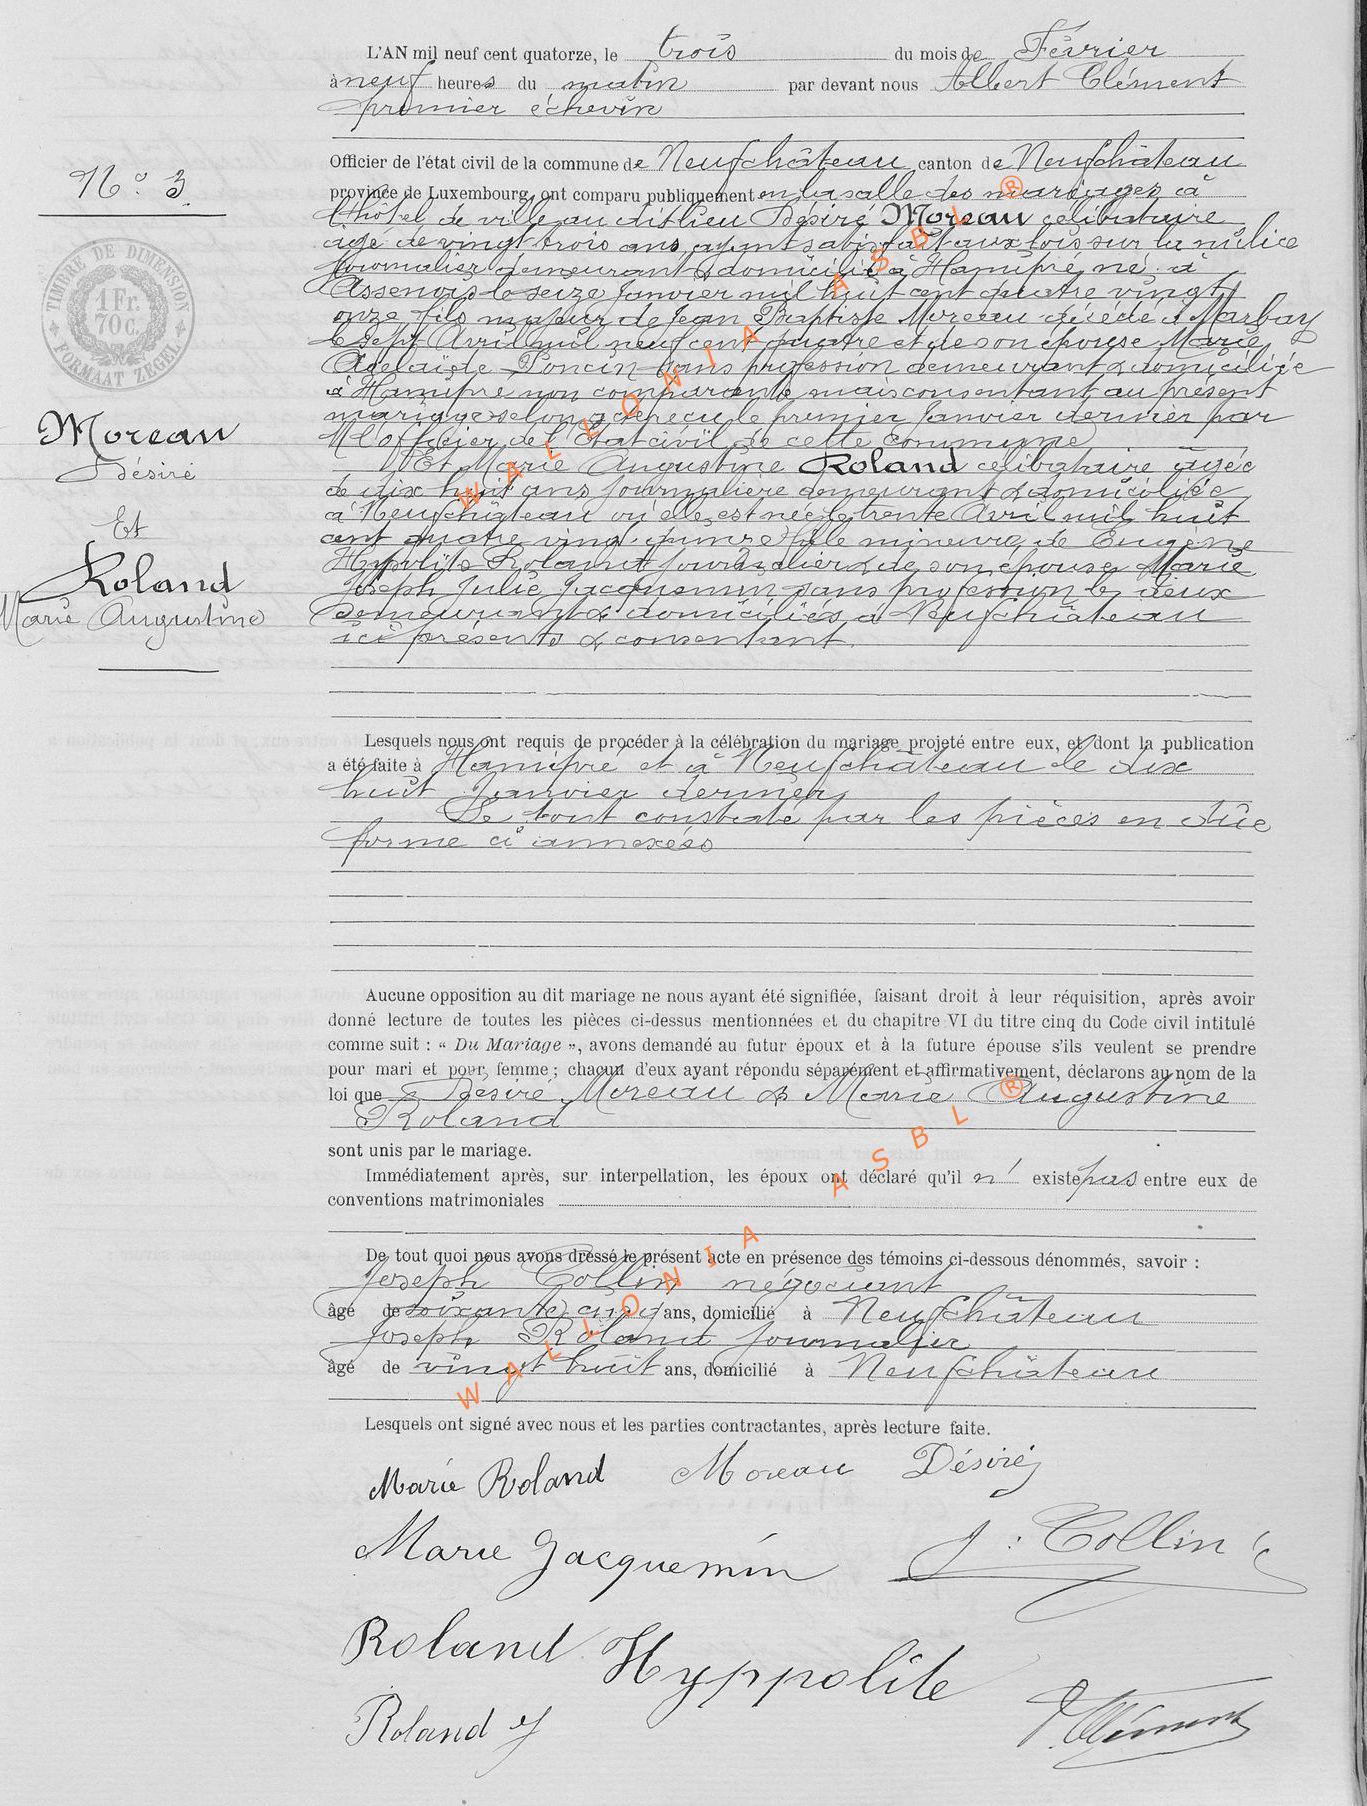 L'AN mil neuf cent quatorze, le trois du mois de Février
à neuf heures du matin par devant nous Albert Clément
premier échevin
Officier de l'état civil de la commune de Neufchâteau canton de Neufchâteau
N° 3.
province de Luxembourg, ont comparu publiquement en la salle des mariages à
l'hôtel de ville au dit lieu Désiré Moreau célibataire
âgé de vingt trois ans, ayant satisfait aux lois sur la milice
journalier demeurant & domicilié à Hamipré né à
Assenois le seize Janvier mil huit cent quatre vingt
onze fils majeur de Jean Baptiste Moreau décédé à Marbay
le sept Avril mil neuf cent quatre et de son épouse Marie
Adelaïde Poncin sans profession demeurant & domiciliée
à Hamipré non comparante mais consentant au présent
mariage selon acte reçu le premier Janvier dernier par
M l'officier de l'Etat civil de cette commune
Et Marie Augustine Roland célibataire âgée
de dix huit ans journalière demeurant & domiciliée
à Neufchâteau où elle est née le trente Avril mil huit
cent quatre vingt quinze fille mineure de Eugène
Hyppolite Roland journalier & de son épouse Marie
Joseph Julie Jacquemin sans profession les deux
demeurant & domiciliés à Neufchâteau
ici présents & consentant.
TIMBRE DE DIMENSION
1 Fr.
70 c.
FORMAAT ZEGEL
Moreau
Désiré
Et
Roland
Marie Augustine
Lesquels nous ont requis de procéder à la célébration du mariage projeté entre eux, et dont la publication
a été faite à Hamipré et à Neufchâteau le dix
huit Janvier dernier
Le tout constaté par les pièces en dûe
forme ci annexées
Aucune opposition au dit mariage ne nous ayant été signifiée, faisant droit à leur réquisition, après avoir
donné lecture de toutes les pièces ci-dessus mentionnées et du chapitre VI du titre cinq du Code civil intitulé
comme suit : « Du Mariage », avons demandé au futur époux et à la future épouse s'ils veulent se prendre
pour mari et pour femme ; chacun d'eux ayant répondu séparément et affirmativement, déclarons au nom de la
loi que Désiré Moreau & Marie Augustine
Roland
sont unis par le mariage.
Immédiatement après, sur interpellation, les époux ont déclaré qu'il n' existe pas entre eux de
conventions matrimoniales
De tout quoi nous avons dressé le présent acte en présence des témoins ci-dessous dénommés, savoir :
Joseph Collin négociant
âgé de soixante cinq ans, domicilié à Neufchâteau
Joseph Roland journalier
âgé de vingt huit ans, domicilié à Neufchâteau
Lesquels ont signé avec nous et les parties contractantes, après lecture faite.
Marie Roland Moreau Désiré
Marie Jacquemin J. Collin
Roland Hyppolite
Roland J
Clément
WALLONIA ASBL ®
WALLONIA ASBL ®